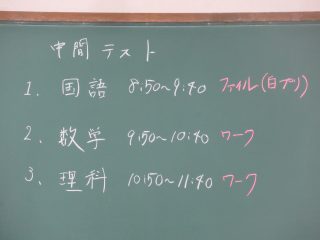 中間テスト
1. 国語 8:50~9:40 ファイル(自プリ)
2. 数学 9:50~10:40 ワーク
3. 理科 10:50~11:40 ワーク